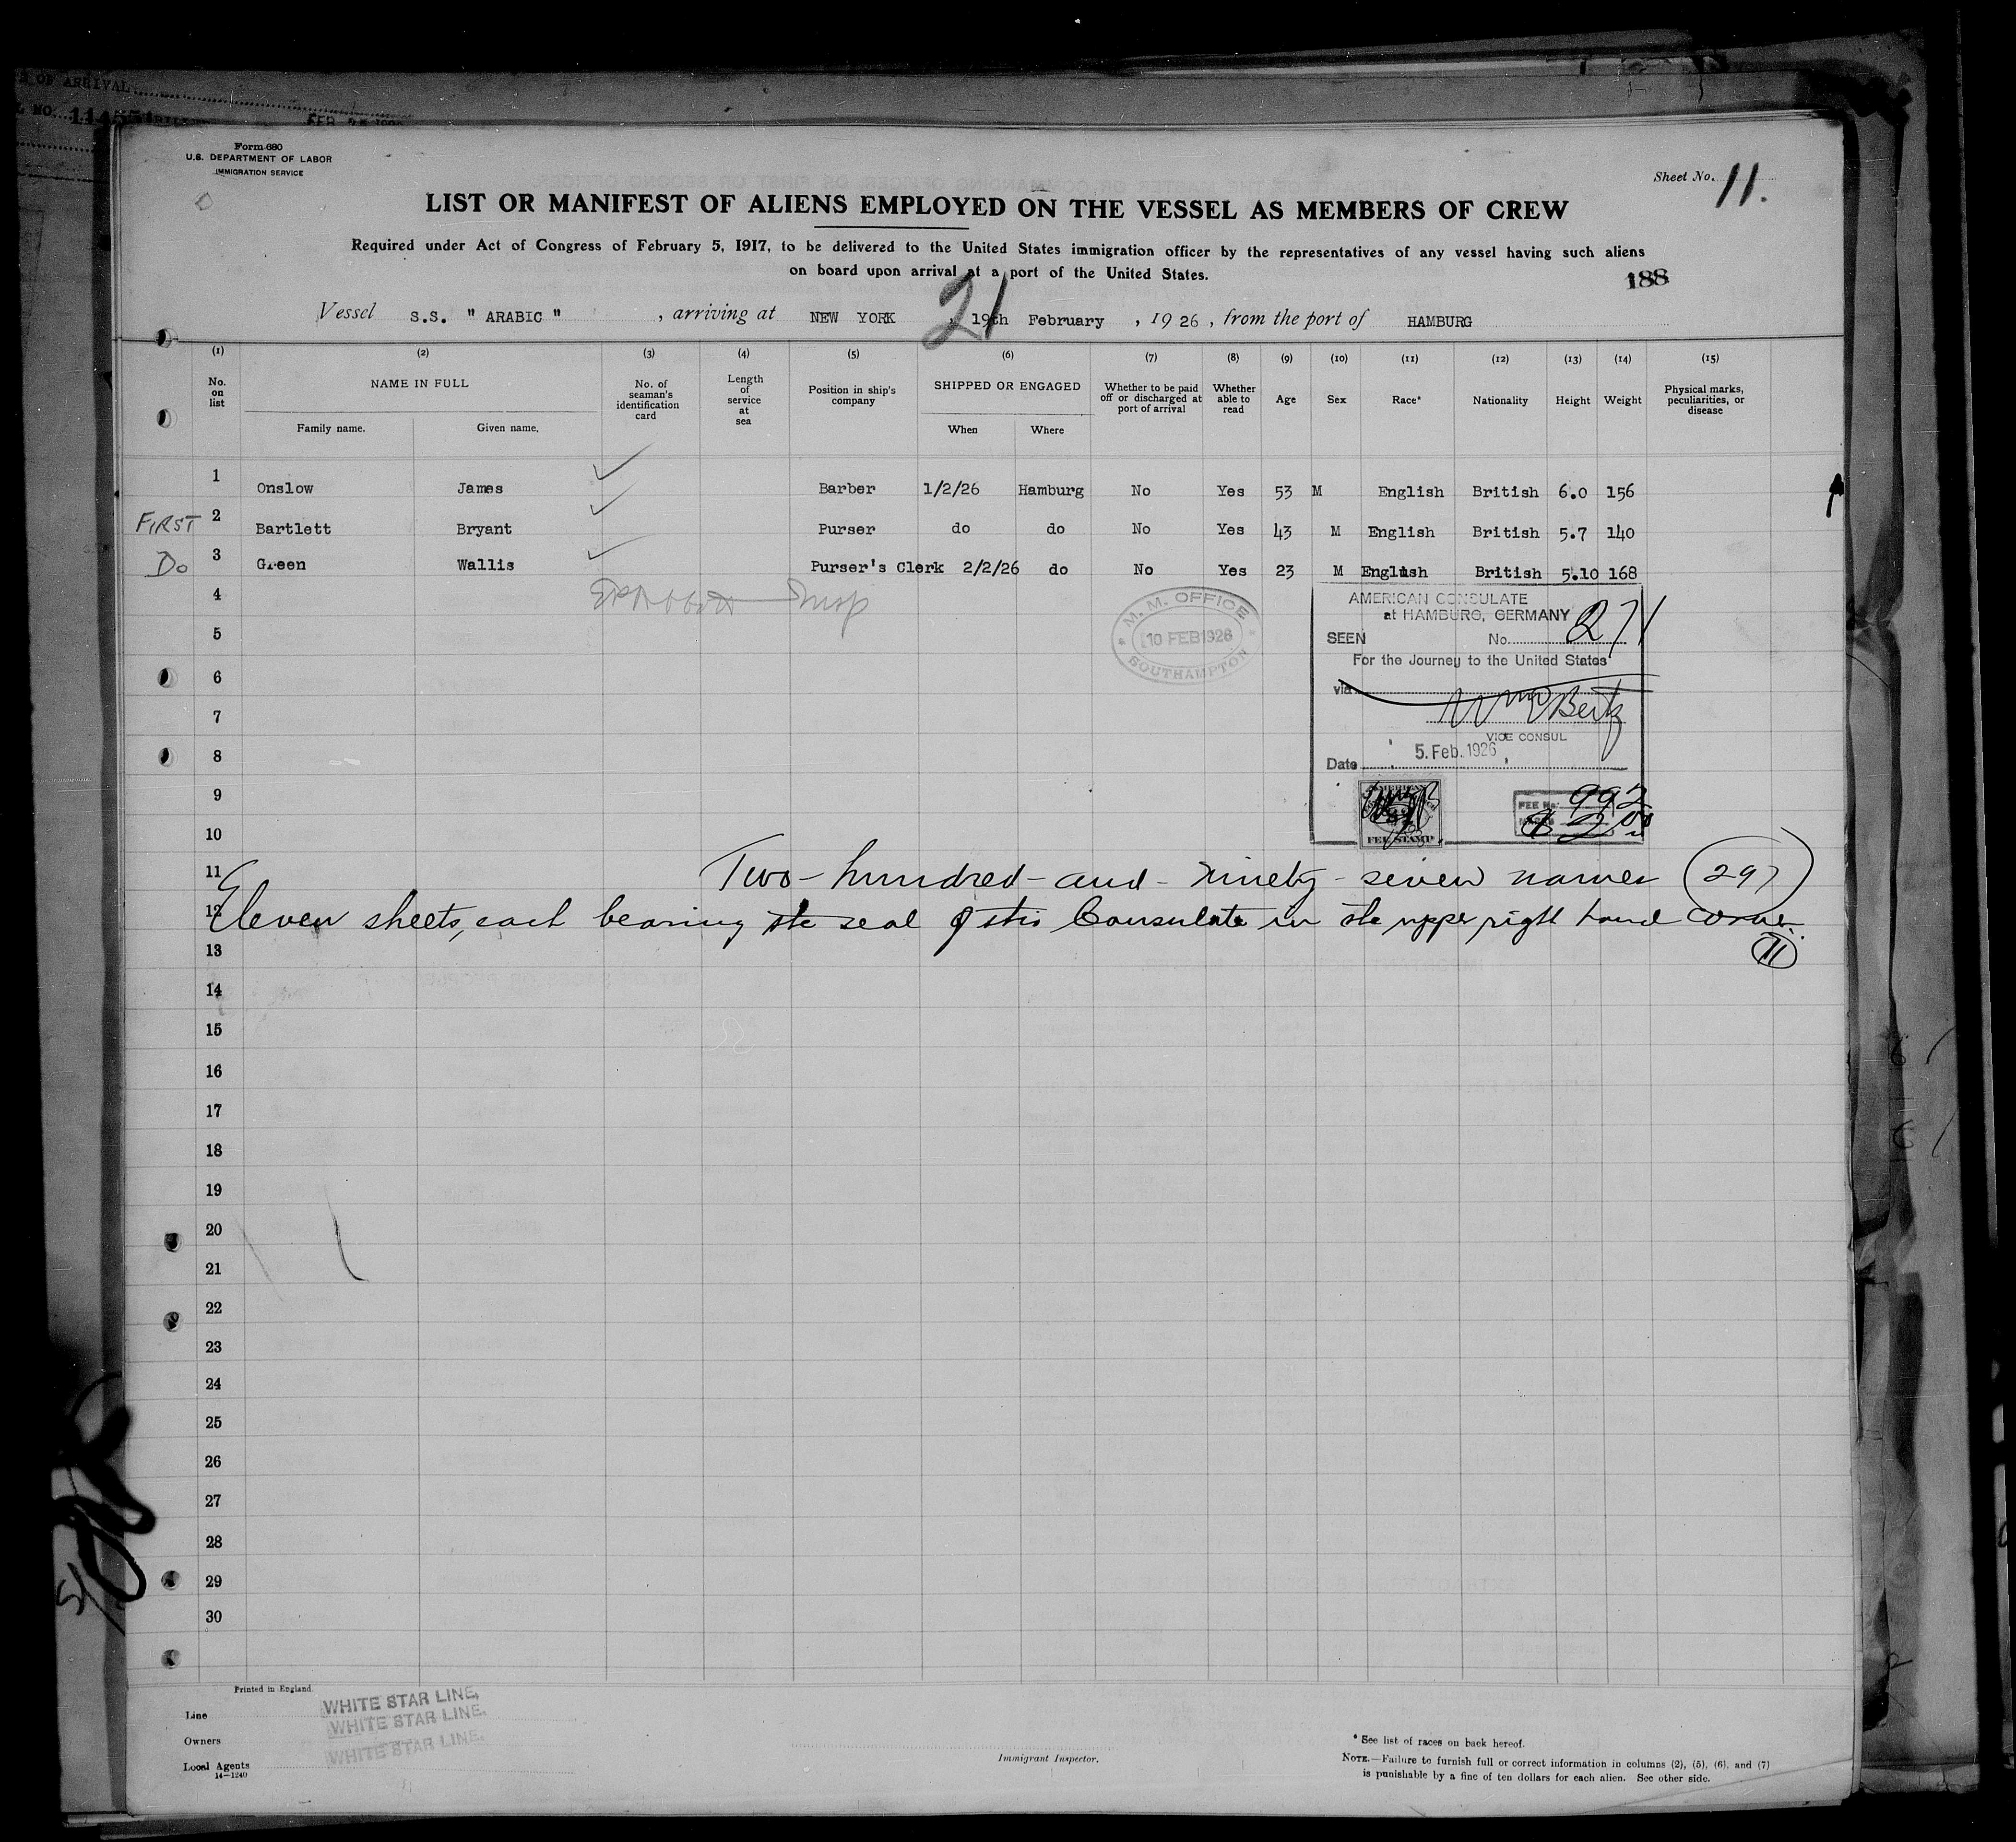 OF ARRIVAL
NO. 11457
FEB
Form 680
U.S. DEPARTMENT OF LABOR
IMMIGRATION SERVICE
Sheet No. 11.
LIST OR MANIFEST OF ALIENS EMPLOYED ON THE VESSEL AS MEMBERS OF CREW
Required under Act of Congress of February 5, 1917, to be delivered to the United States immigration officer by the representatives of any vessel having such aliens
on board upon arrival at a port of the United States.
188
21
Vessel S.S. " ARABIC " , arriving at NEW YORK , 19th February , 1926 , from the port of HAMBURG
(1) (2) (3) (4) (5) (6) (7) (8) (9) (10) (11) (12) (13) (14) (15)
No. on list NAME IN FULL No. of seaman's identification card Length of service at sea Position in ship's company SHIPPED OR ENGAGED Whether to be paid off or discharged at port of arrival Whether able to read Age Sex Race* Nationality Height Weight Physical marks, peculiarities, or disease
Family name. Given name. When Where
1 Onslow James Barber 1/2/26 Hamburg No Yes 53 M English British 6.0 156
FIRST 2 Bartlett Bryant Purser do do No Yes 43 M English British 5.7 140
Do 3 Green Wallis Purser's Clerk 2/2/26 do No Yes 23 M English British 5.10 168
4
5
6
7
8
9
10
M. M. OFFICE
10 FEB 1926
SOUTHAMPTON
AMERICAN CONSULATE
at HAMBURG, GERMANY
SEEN No. 271
For the Journey to the United States
via
VICE CONSUL
Date 5. Feb. 1926
FEE STAMP
FEE No. 992
11 Two-hundred-and-ninety-seven names (297)
12 Eleven sheets, each bearing the seal of this Consulate in the upper right hand corner.
11
13
14
15
16
17
18
19
20
21
22
23
24
25
26
27
28
29
30
Printed in England.
Line WHITE STAR LINE,
Owners WHITE STAR LINE,
Local Agents WHITE STAR LINE,
14—1240
Immigrant Inspector.
* See list of races on back hereof.
NOTE.—Failure to furnish full or correct information in columns (2), (5), (6), and (7)
is punishable by a fine of ten dollars for each alien. See other side.